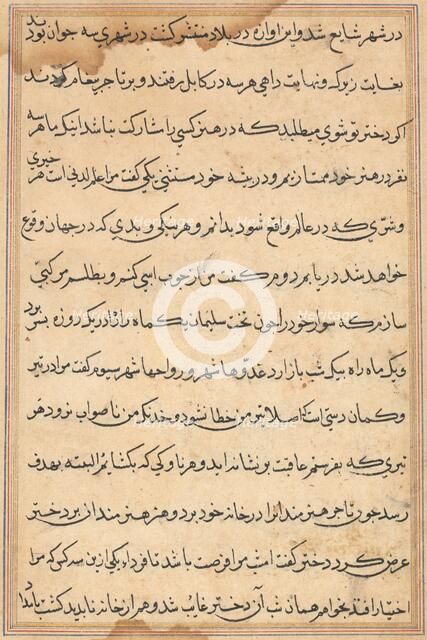 در شهر شایع شد و این اوازه در بلاد منتشر کشت در شهری سه جوان بودند
بغایت زیرک و نهایت داهی هر سه در کابل رفتند و بر تاجر پیغام کردند
اکر دختر تو شوی میطلبد که در هنر کسی را مشارکت نباشد اینک ما هر سه
نفر در هنر خود ممتازیم و در پیشه خود مستثنی یکی کفت مرا علم لدنی است هر خیری
و شری که در عالم واقع شود بدانم و هر نیکی و بدی که در جهان وقوع
خواهد شد دریابم دوم کفت من از چوب اسپی کنم و بطلسم مرکبی
سازم که سوار خود را چون تخت سلیمان یکماه راه را در یک روزه برد
و یکماه راه بیک شب باز ارد غدوها شهر و رواحها شهر سیوم کفت مرا در تیر
و کمان دستی است که اصلا تیر من خطا نشود و خدنک من ناصواب نرود هر
تیری که بفرستم عاقبت بر نشانه اید و هر ناوکی که بکشایم البته بهدف
رسد چون تاجر هنرمندانرا در خانه خود برد و هنر هنرمندان بر دختر
عرض کرد دختر کفت امشب مرا فرصت باشد تا فردا یکی ازین سه کس که مرا
اختیار افتد بخواهم همان شب آن دختر غایب شد و هم از خانه ناپدید کشت بامداد
Heritage